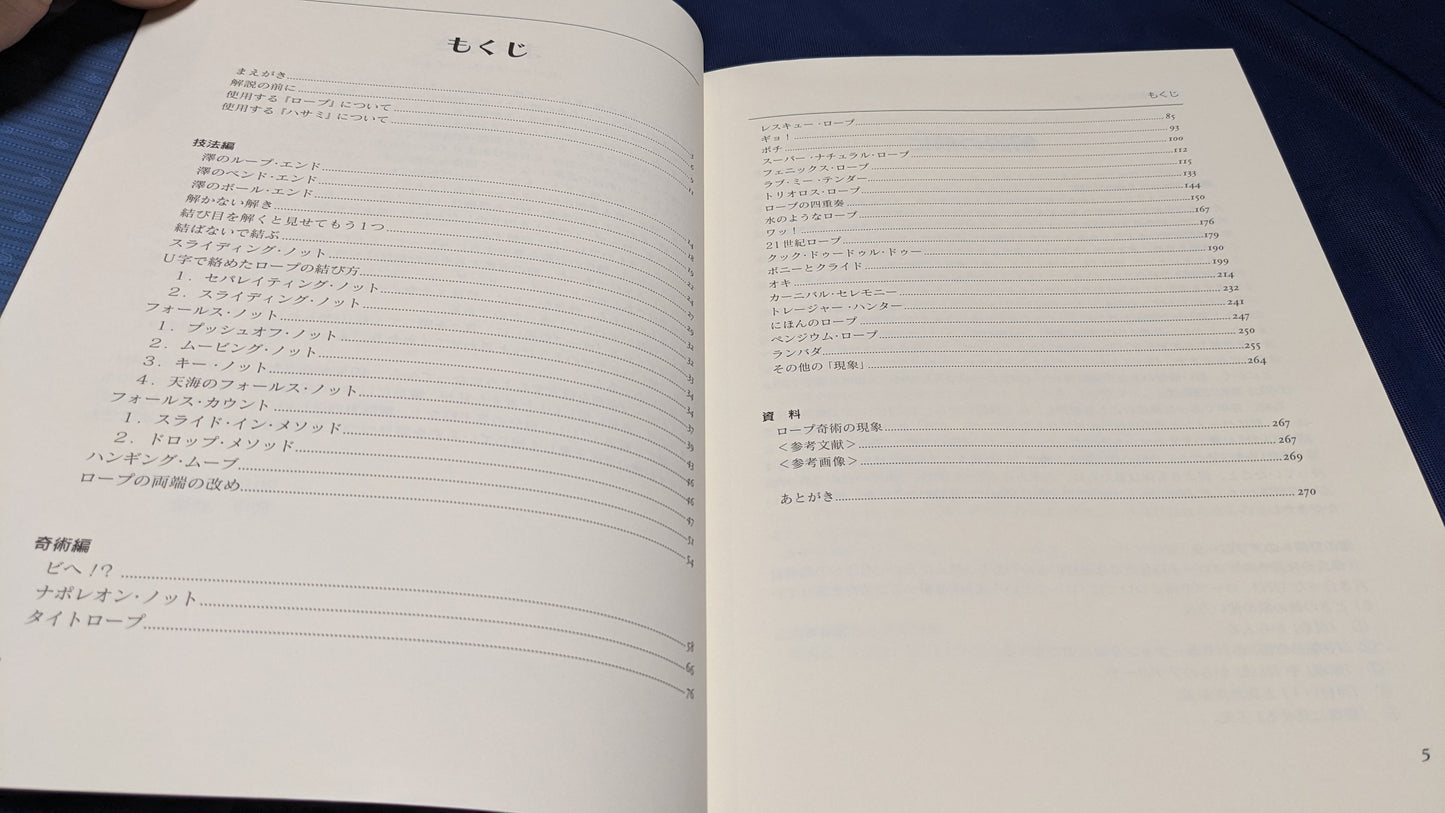 もくじ
まえがき
解説の前に
使用する『ロープ』について
使用する『ハサミ』について
技法編
澤のループ・エンド
澤のベンド・エンド
澤のボール・エンド
解かない解き
結び目を解くと見せてもう1つ
結ばないで結ぶ
スライディング・ノット
U字で絡めたロープの結び方
1. セパレイティング・ノット
2. スライディング・ノット
フォールス・ノット
1. プッシュオフ・ノット
2. ムービング・ノット
3. キー・ノット
4. 天海のフォールス・ノット
フォールス・カウント
1. スライド・イン・メソッド
2. ドロップ・メソッド
ハンギング・ムーブ 51
ロープの両端の改め 54
奇術編
ビヘ!? 58
ナポレオン・ノット 66
タイトロープ 76
もくじ
レスキュー・ロープ 85
ギョ! 93
ポチ 100
スーパー・ナチュラル・ロープ 112
フェニックス・ロープ 115
ラブ・ミー・テンダー 133
トリオロス・ロープ 144
ロープの四重奏 150
水のようなロープ 167
ワッ! 176
21世紀ロープ 179
クック・ドゥードゥル・ドゥー 190
ボニーとクライド 199
オキ 214
カーニバル・セレモニー 232
トレージャー・ハンター 241
にほんのロープ 247
ペンジウム・ロープ 250
ランバダ 255
その他の「現象」 264
資 料
ロープ奇術の現象 267
＜参考文献＞ 267
＜参考画像＞ 269
あとがき 270
5